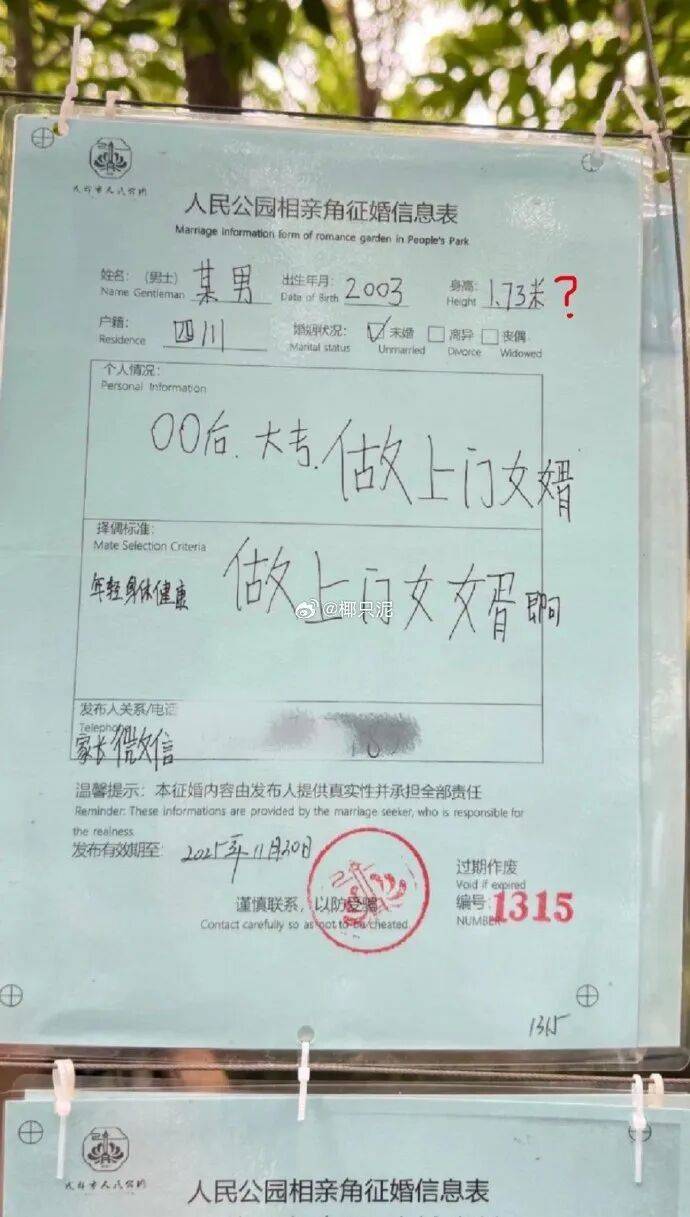 成都市人民公园
人民公园相亲角征婚信息表
Marriage information form of romance garden in People's Park
姓名：（男士） 某男 出生年月： 2003 身高： 1.73米 ?
Name Gentleman Date of Birth Height
户籍： 四川 婚姻状况： ☑ 未婚 □ 离异 □ 丧偶
Residence Marital status Unmarried Divorce Widowed
个人情况：
Personal Information
00后、大专、做上门女婿
择偶标准：
Mate Selection Criteria
年轻身体健康 做上门女女婿即可
@椰只泥
发布人关系/电话
Telephone
家长微信
温馨提示：本征婚内容由发布人提供真实性并承担全部责任
Reminder: These informations are provided by the marriage seeker, who is responsible for
the realness
发布有效期至： 2025年11月30日
过期作废
Void if expired
谨慎联系，以防受骗 编号: 1315
Contact carefully so as not to be cheated. NUMBER
1315
成都市人民公园
人民公园相亲角征婚信息表